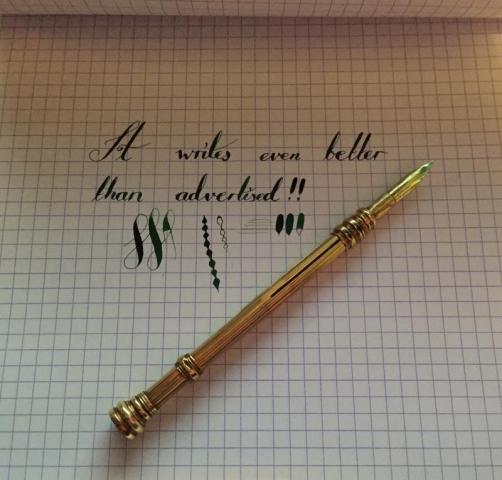 It writes even better
than advertised!!